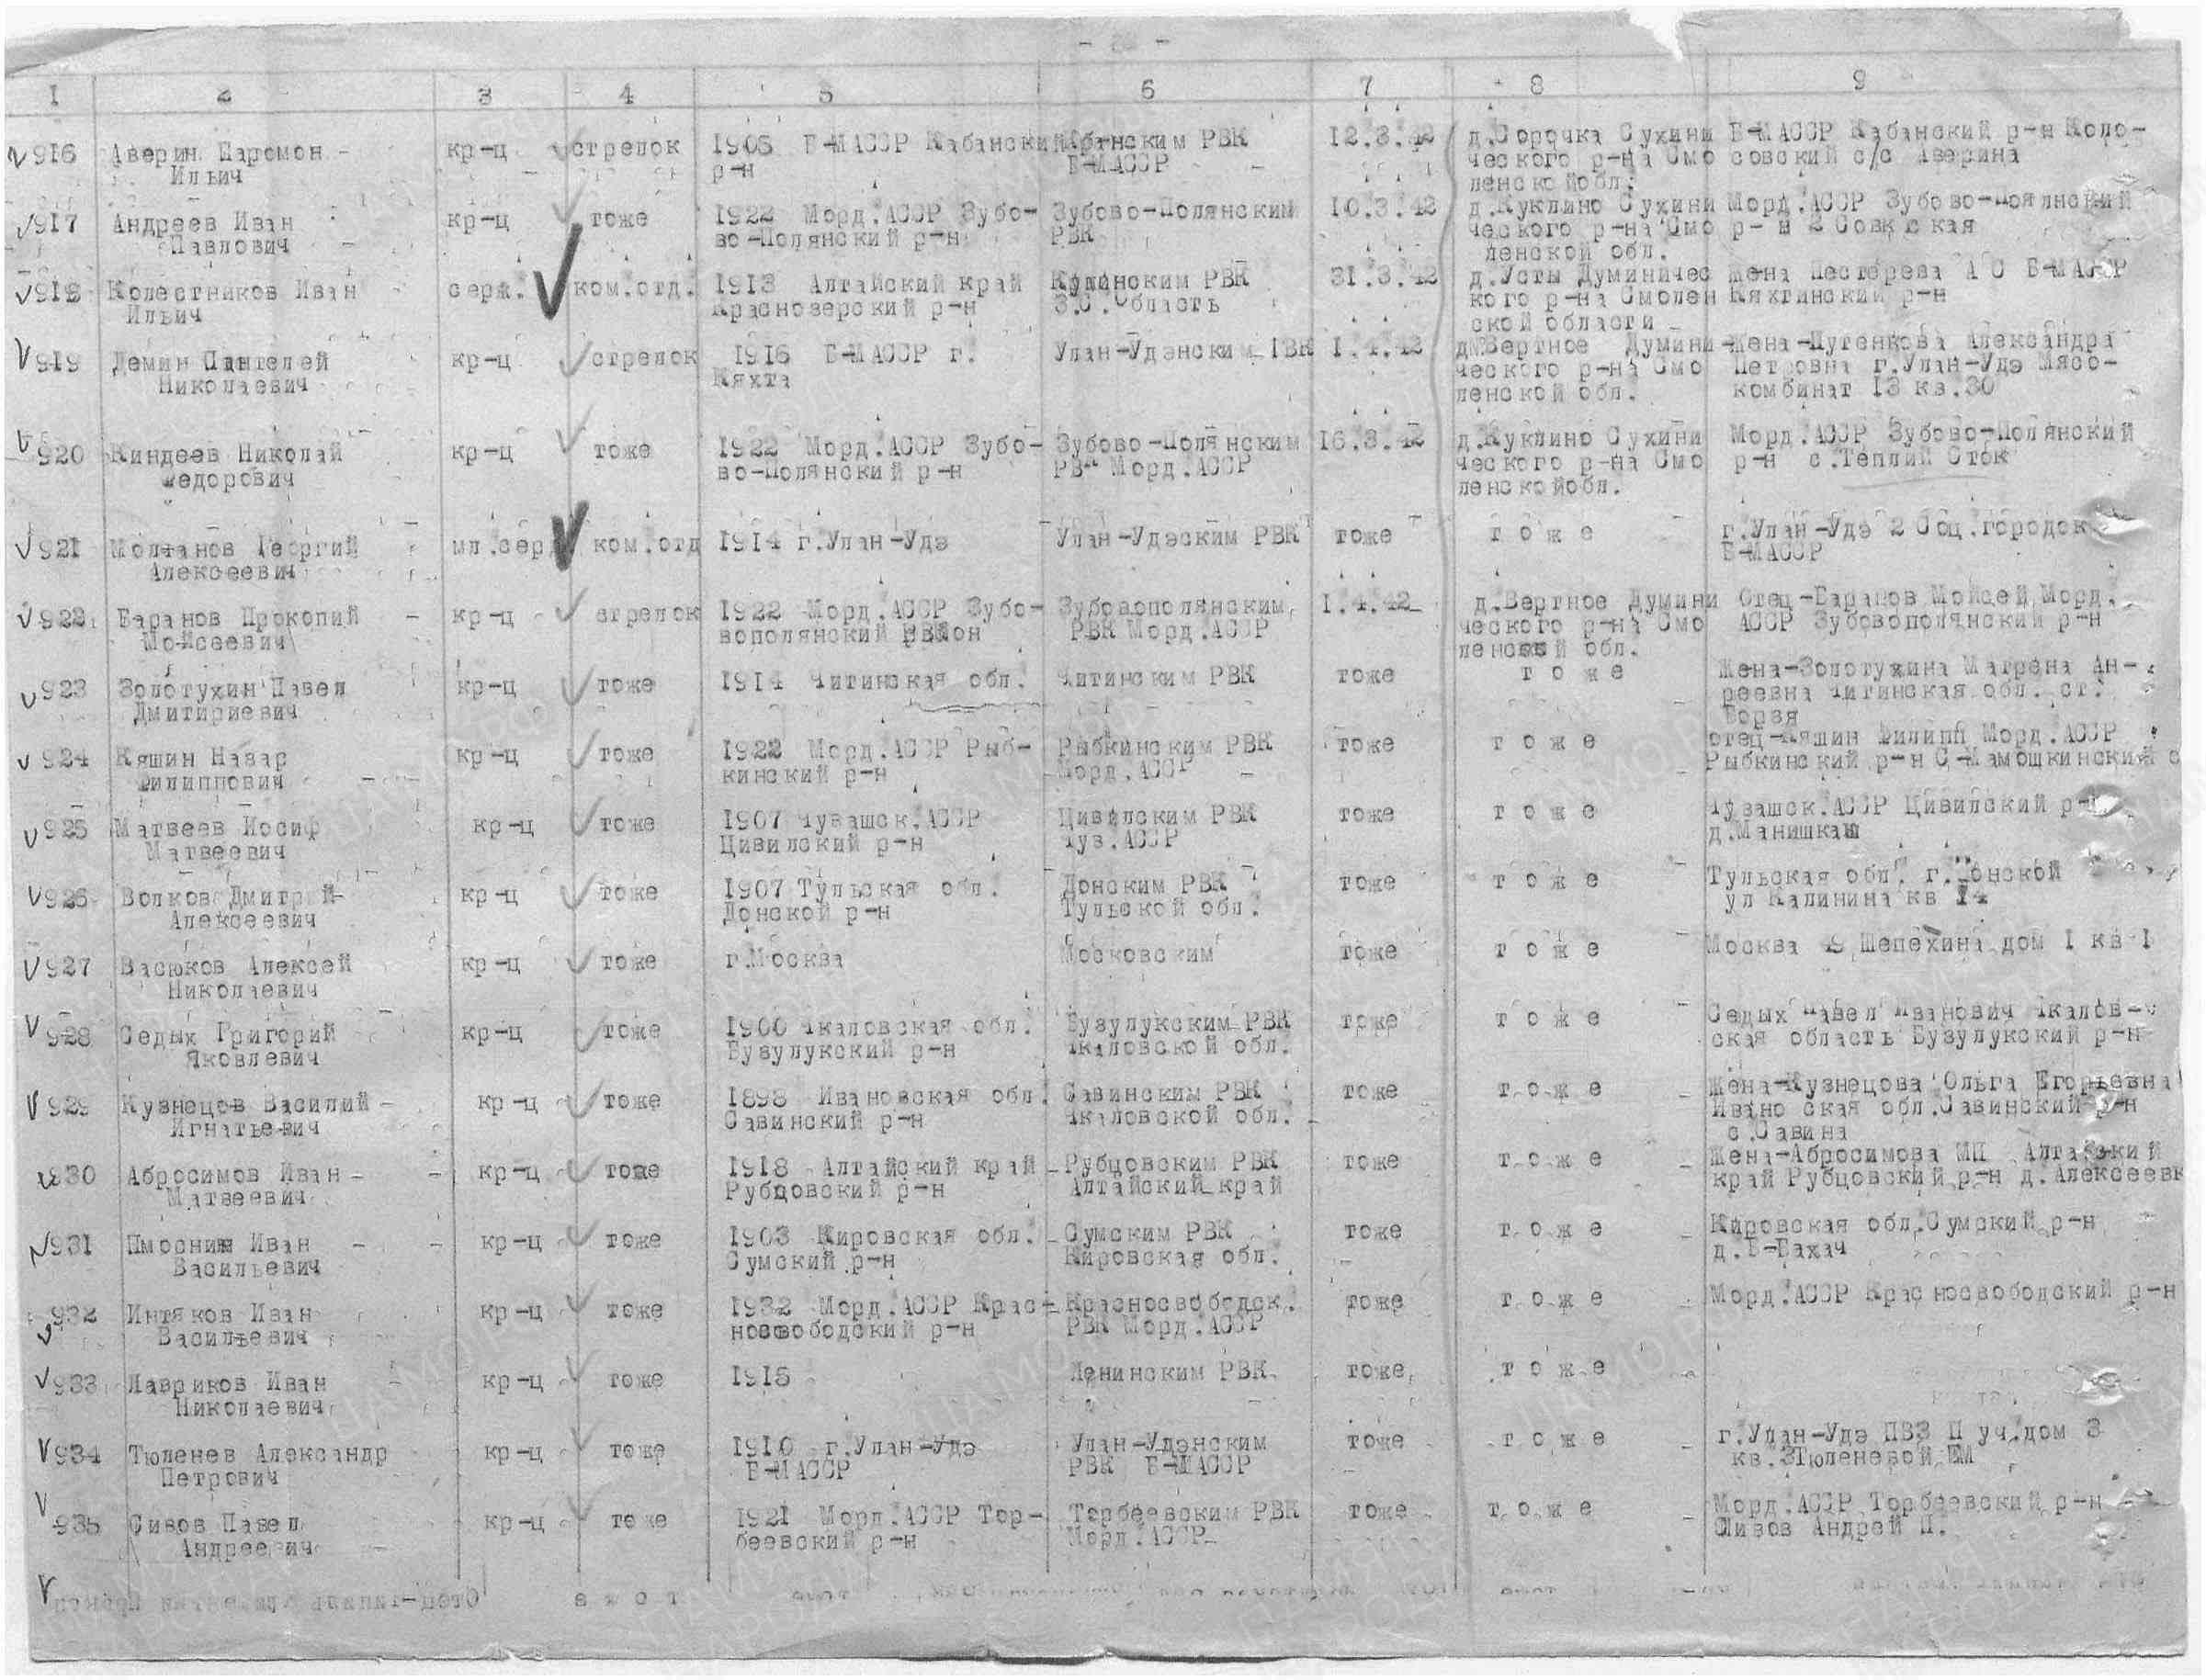 1 2 3 4 5 6 7 8 9
916 Аверин Парамон кр-ц стрелок 1905 Б-МАССР Кабанский Кабанским РВК 12.3.42 д.Сорочка Сухини Б-МАССР Кабанский р-н Коло-
Ильич р-н Б-МАССР ческого р-на Смо совский с/с Аверина
ленскойобл.
917 Андреев Иван кр-ц тоже 1922 Морд.АССР Зубо- Зубово-Полянским 10.3.42 д.Куклино Сухини Морд.АССР Зубово-Полянский
Павлович во-Полянский р-н РВК ческого р-на Смо р-н 2
ленской обл.
918 Колестников Иван серж. ком.отд. 1913 Алтайский край РВК 31.3.42 д.Усты Думиничес Жена Пестерева А С Б-МАССР
Ильич Краснозерский р-н З.С.Область кого р-на Смолен Кяхтинский р-н
ской области
919 Демин Пантелей кр-ц стрелок 1916 Б-МАССР г. Улан-Удэнским ГВК 1.4.42 д.Вертное Думини Жена-Пугенкова Александра
Николаевич Кяхта ческого р-на Смо Петровна г.Улан-Удэ Мясо-
ленской обл. комбинат 13 кв.30
920 Киндеев Николай кр-ц тоже 1922 Морд.АССР Зубо- Зубово-Полянским 16.3.42 д.Куклино Сухини Морд.АССР Зубово-Полянский
Федорович во-Полянский р-н РВК Морд.АССР ческого р-на Смо р-н с.Теплий Сток
ленскойобл.
921 Молтанов Георгий мл.сер ком.отд 1914 г.Улан-Удэ Улан-Удэским РВК тоже тоже г.Улан-Удэ 2 Соц.городок
Алексеевич Б-МАССР
922 Баранов Прокопий кр-ц стрелок 1922 Морд.АССР Зубо- Зубовополянским 1.4.42 д.Вертное Думини Отец-Баранов Мойсей Морд.
Мойсеевич вополянский район РВК Морд.АССР ческого р-на Смо АССР Зубовополянский р-н
ленской обл.
923 Золотухин Павел кр-ц тоже 1914 Читинская обл. Читинским РВК тоже тоже Жена-Золотухина Матрена Ан-
Дмитириевич реевна Читинская обл. ст.
Борзя
924 Кяшин Назар кр-ц тоже 1922 Морд.АССР Рыб- Рыбкинским РВК тоже тоже отец-Кяшин Филипп Морд.АССР
Филиппович кинский р-н Морд.АССР Рыбкинский р-н С-Мамошкинский с
925 Матвеев Иосиф кр-ц тоже 1907 Чувашск.АССР Цивилским РВК тоже тоже Чувашск.АССР Цивилский р-н
Матвеевич Цивилский р-н Чув.АССР д.Манишкаш
926 Волков Дмитрий кр-ц тоже 1907 Тульская обл. Донским РВК тоже тоже Тульская обл. г.Донской
Алексеевич Донской р-н Тульской обл. ул Калинина кв 14
927 Васюков Алексей кр-ц тоже г.Москва Московским тоже тоже Москва 9 Шепехина дом 1 кв 1
Николаевич
928 Седых Григорий кр-ц тоже 1900 Чкаловская обл. Бузулукским РВК тоже тоже Седых Павел Иванович Чкалов-
Яковлевич Бузулукский р-н Чкаловской обл. ская область Бузулукский р-н
929 Кузнецов Василий кр-ц тоже 1898 Ивановская обл. Савинским РВК тоже тоже Жена-Кузнецова Ольга Егорьевна
Игнатьевич Савинский р-н Чкаловской обл. Ивано ская обл.Савинский р-н
с.Савина
930 Абросимов Иван кр-ц тоже 1918 Алтайский край Рубцовским РВК тоже тоже Жена-Абросимова МП Алтайский
Матвеевич Рубцовский р-н Алтайский край край Рубцовский р-н д.Алексеевк
931 Пмоснин Иван кр-ц тоже 1903 Кировская обл. Сумским РВК тоже тоже Кировская обл.Сумский р-н
Васильевич Сумский р-н Кировская обл. д.Б-Бахач
932 Интяков Иван кр-ц тоже 1932 Морд.АССР Крас- Красносвободск. тоже тоже Морд.АССР Красносвободский р-н
Васильевич нослободский р-н РВК Морд.АССР
933 Лавриков Иван кр-ц тоже 1918 Ленинским РВК тоже тоже
Николаевич
934 Тюленев Александр кр-ц тоже 1910 г.Улан-Удэ Улан-Удэнским тоже тоже г.Улан-Удэ ПВЗ П уч.дом 3
Петрович Б-МАССР РВК Б-МАССР кв.3Тюленевой ЕМ
935 Сивов Павел кр-ц тоже 1921 Морд.АССР Тор- Торбеевским РВК тоже тоже Морд.АССР Торбеевский р-н
Андреевич беевский р-н Морд.АССР Сивов Андрей П.